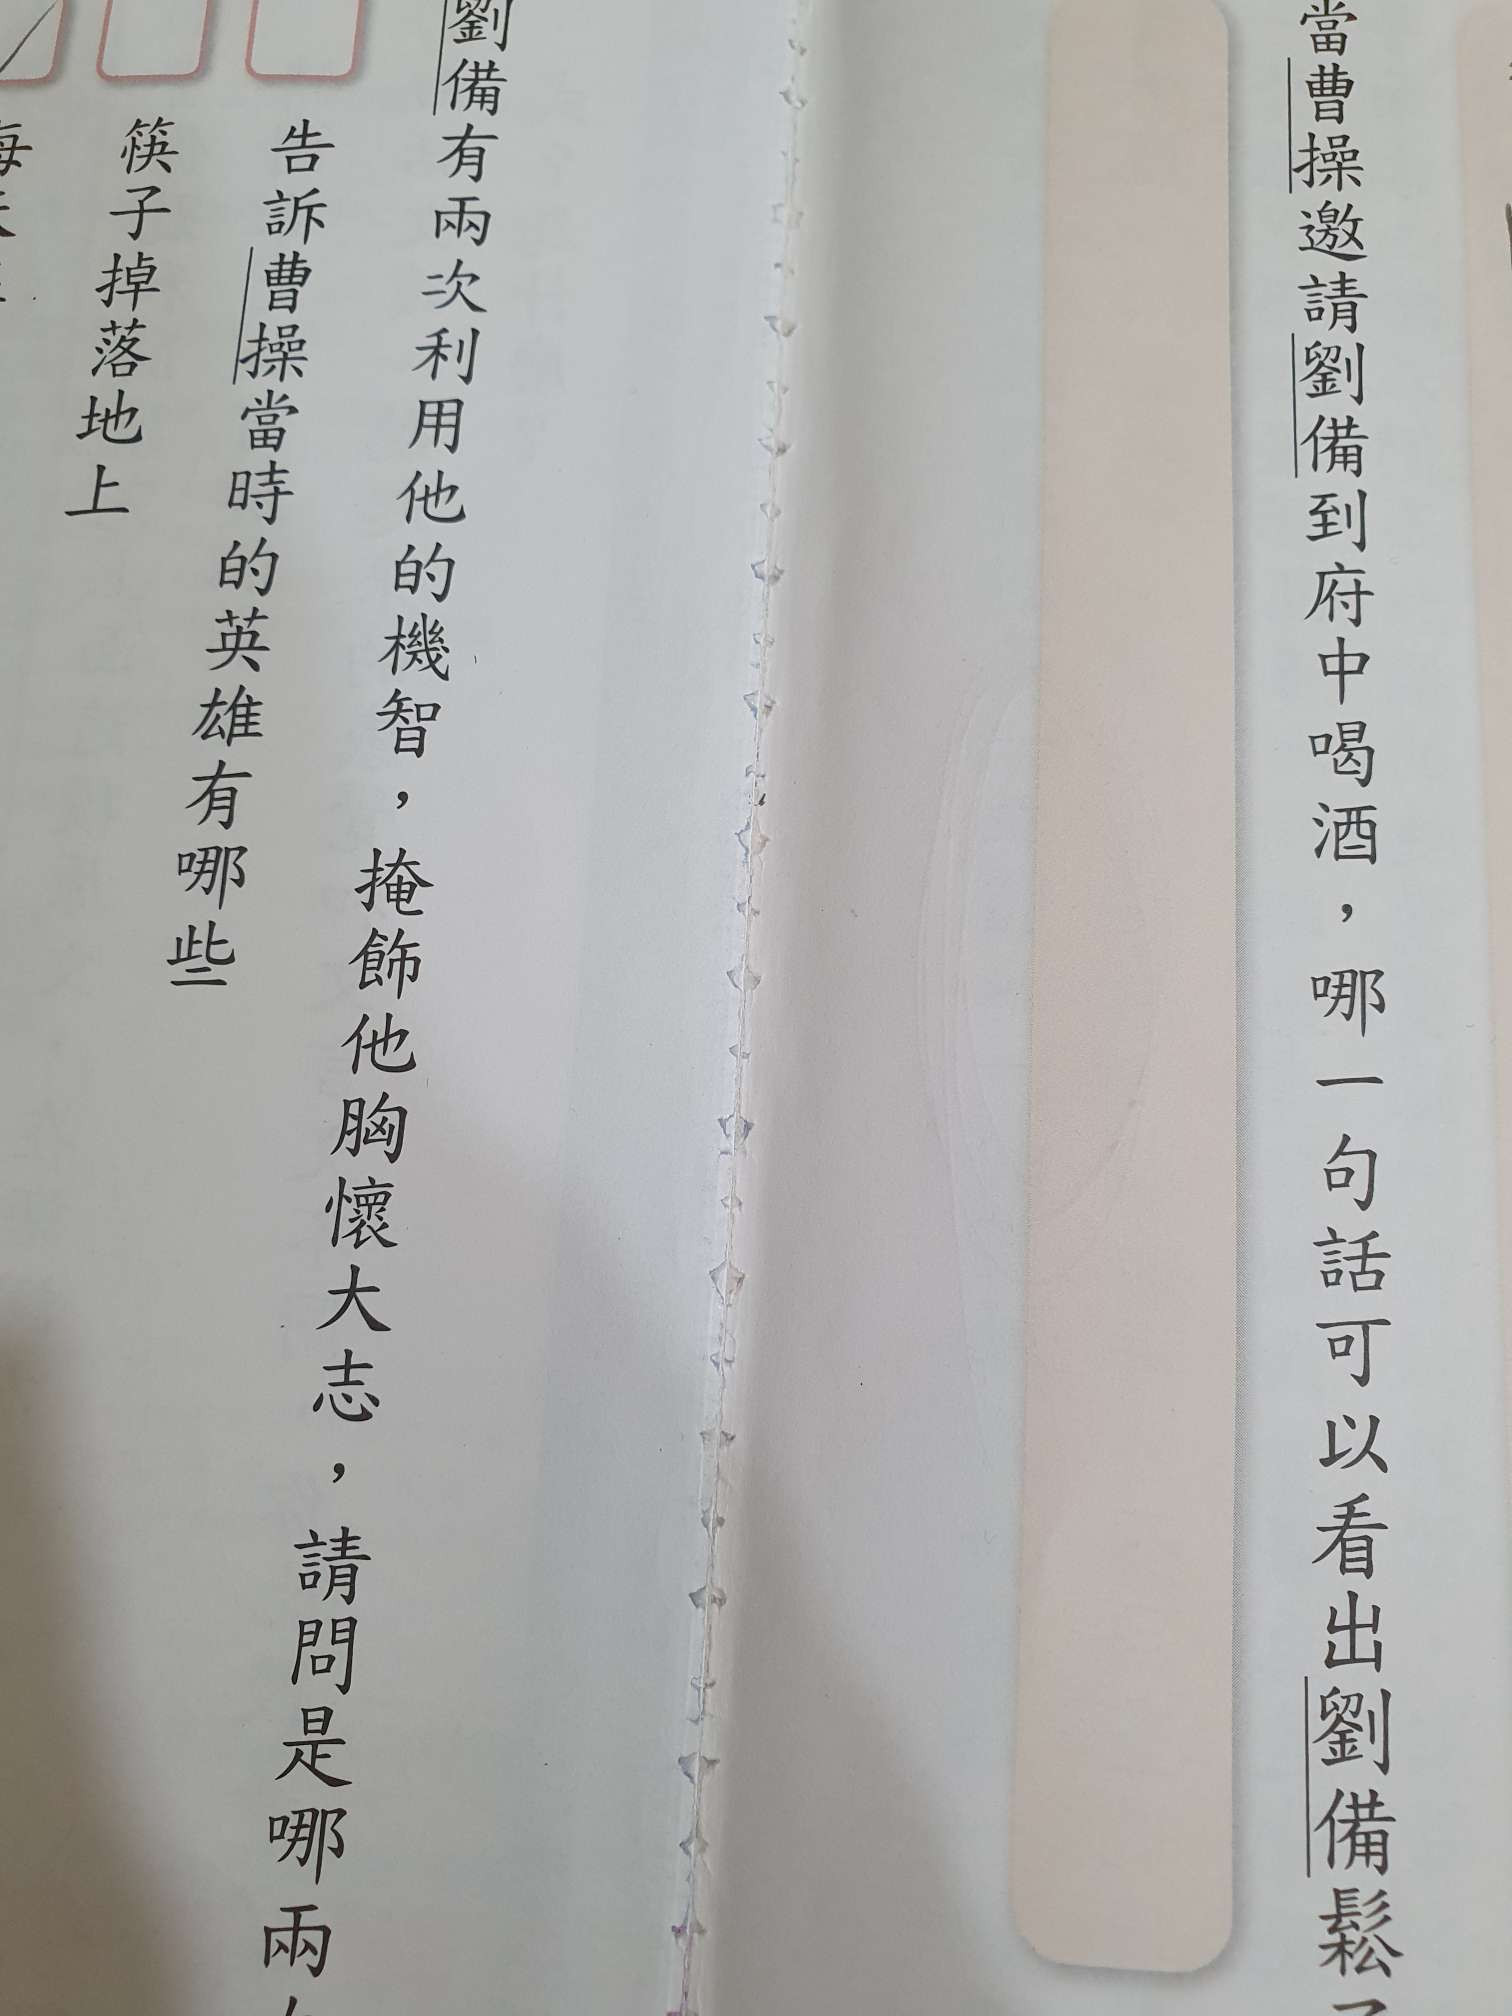 當曹操邀請劉備到府中喝酒，哪一句話可以看出劉備鬆
劉備有兩次利用他的機智，掩飾他胸懷大志，請問是哪兩
告訴曹操當時的英雄有哪些
筷子掉落地上
每天